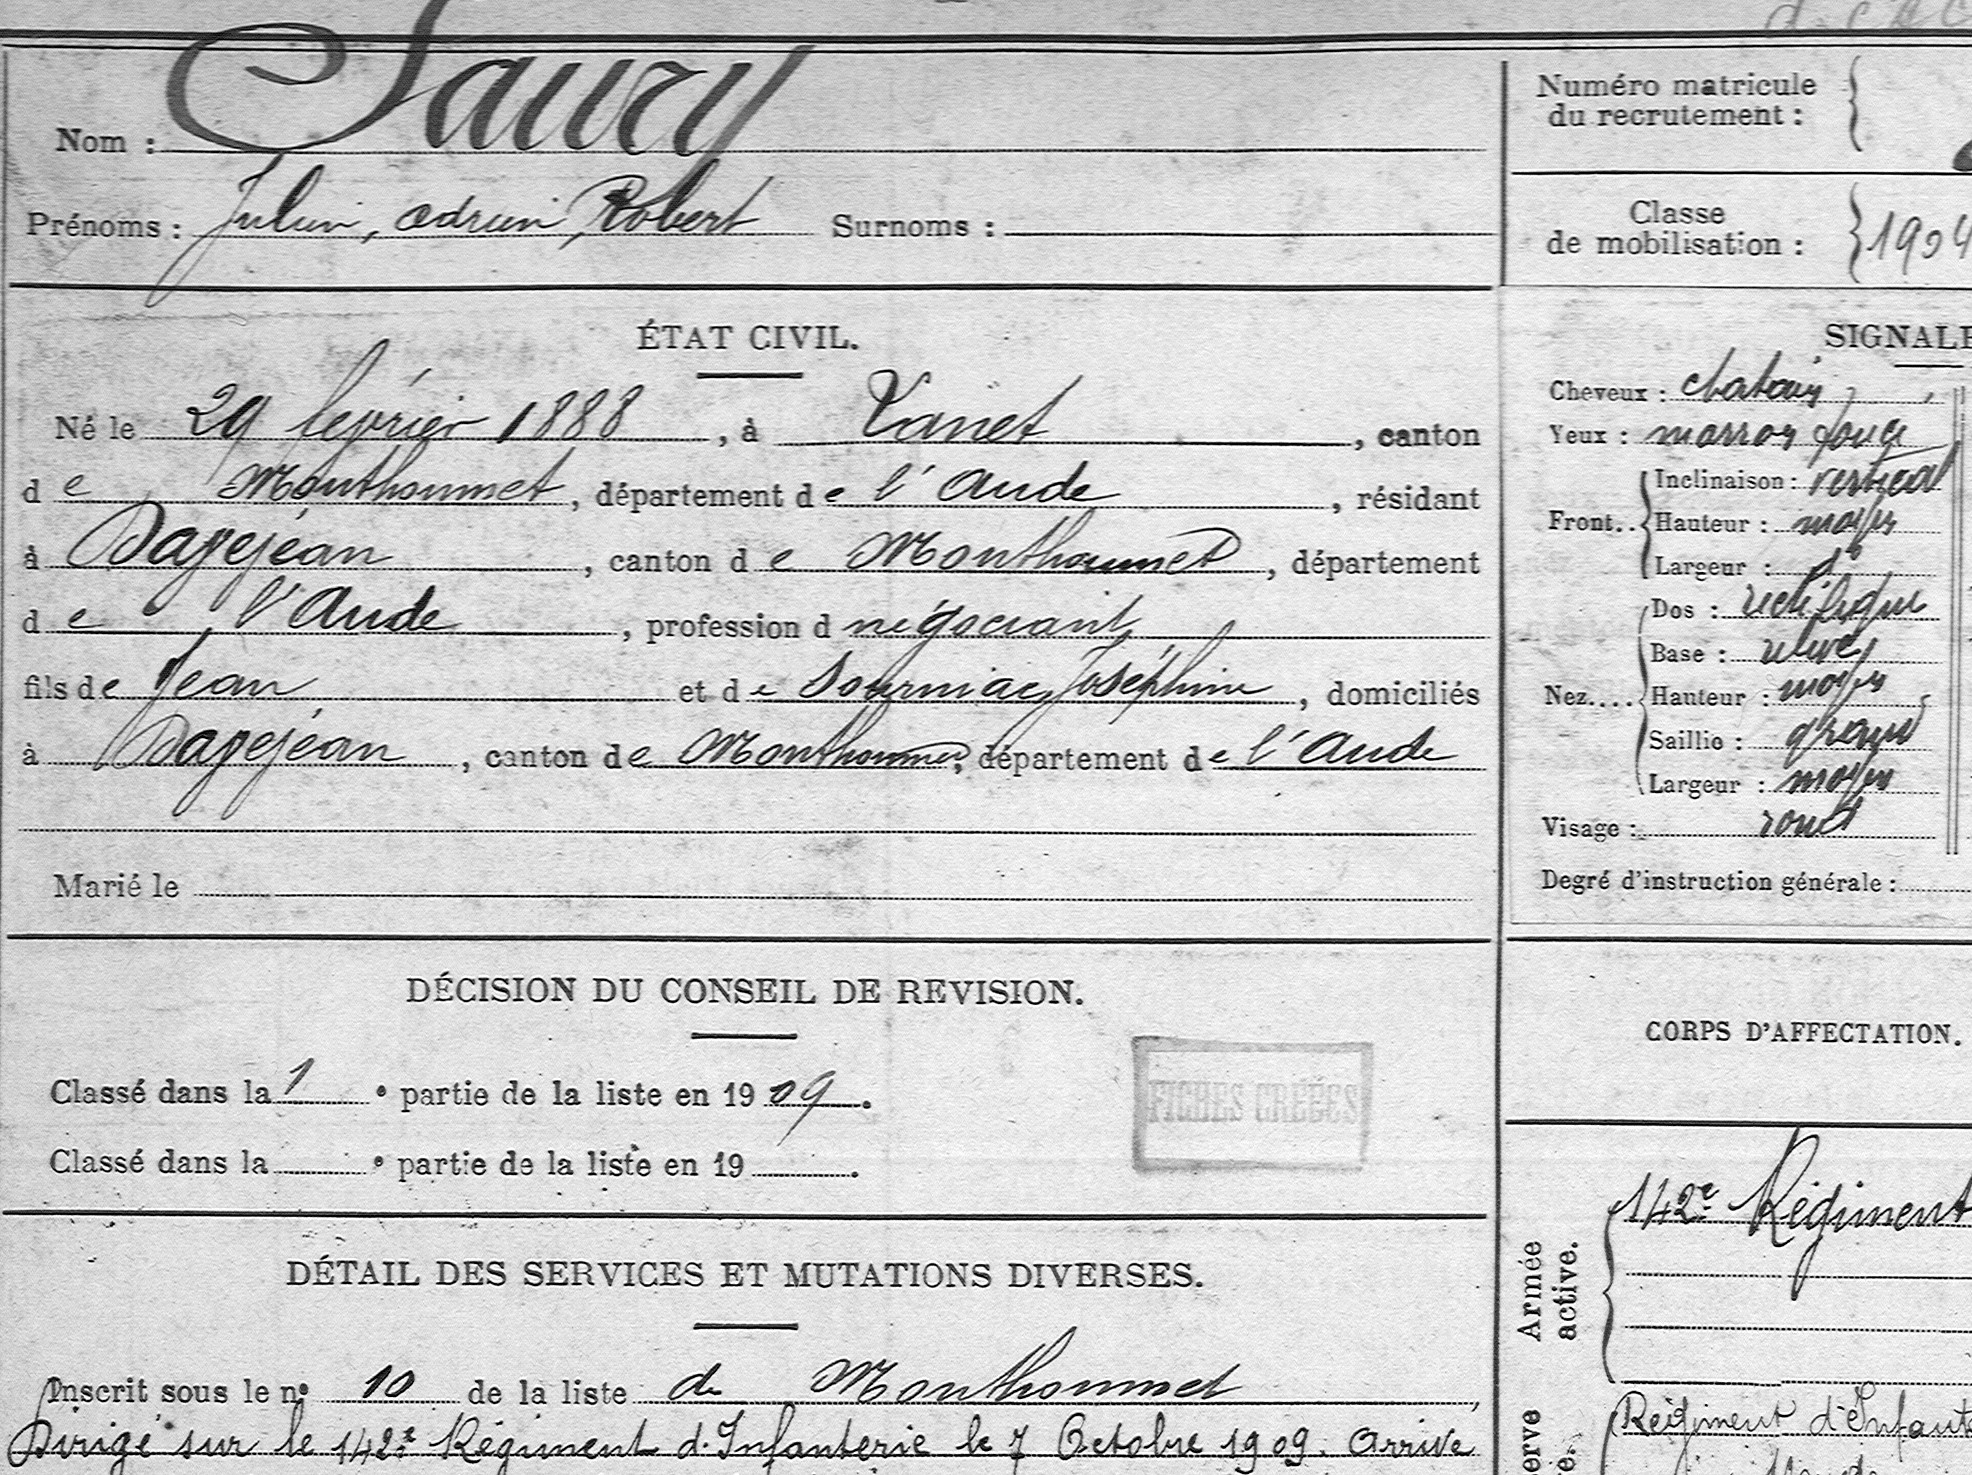 Saury
Nom :
Prénoms : Julien, Adrien, Robert Surnoms :
ÉTAT CIVIL.
Né le 29 février 1888, à Vanet, canton
de Mouthoumet, département de l'Aude, résidant
à Dapejéan, canton de Mouthoumet, département
de l'Aude, profession d négociant
fils de Jean et de Sourniac Joséphine, domiciliés
à Dapejéan, canton de Mouthoumet, département de l'Aude
Marié le
DÉCISION DU CONSEIL DE REVISION.
Classé dans la 1 e partie de la liste en 1909.
Classé dans la e partie de la liste en 19 .
FICHES CRÉÉES
DÉTAIL DES SERVICES ET MUTATIONS DIVERSES.
Inscrit sous le no 10 de la liste de Mouthoumet
Dirigé sur le 142e Régiment d'Infanterie le 7 Octobre 1909. Arrivé
Numéro matricule
du recrutement :
Classe
de mobilisation : 1904
SIGNALE
Cheveux : chatain
Yeux : marron foncé
Front.. Inclinaison : vertical
Hauteur : moyen
Largeur : do
Nez.... Dos : rectiligne
Base : relevé
Hauteur : moyen
Saillie : grand
Largeur : moyen
Visage : rond
Degré d'instruction générale :
CORPS D'AFFECTATION.
Armée
active.
142e Régiment
erve
e.
Régiment d'Infante